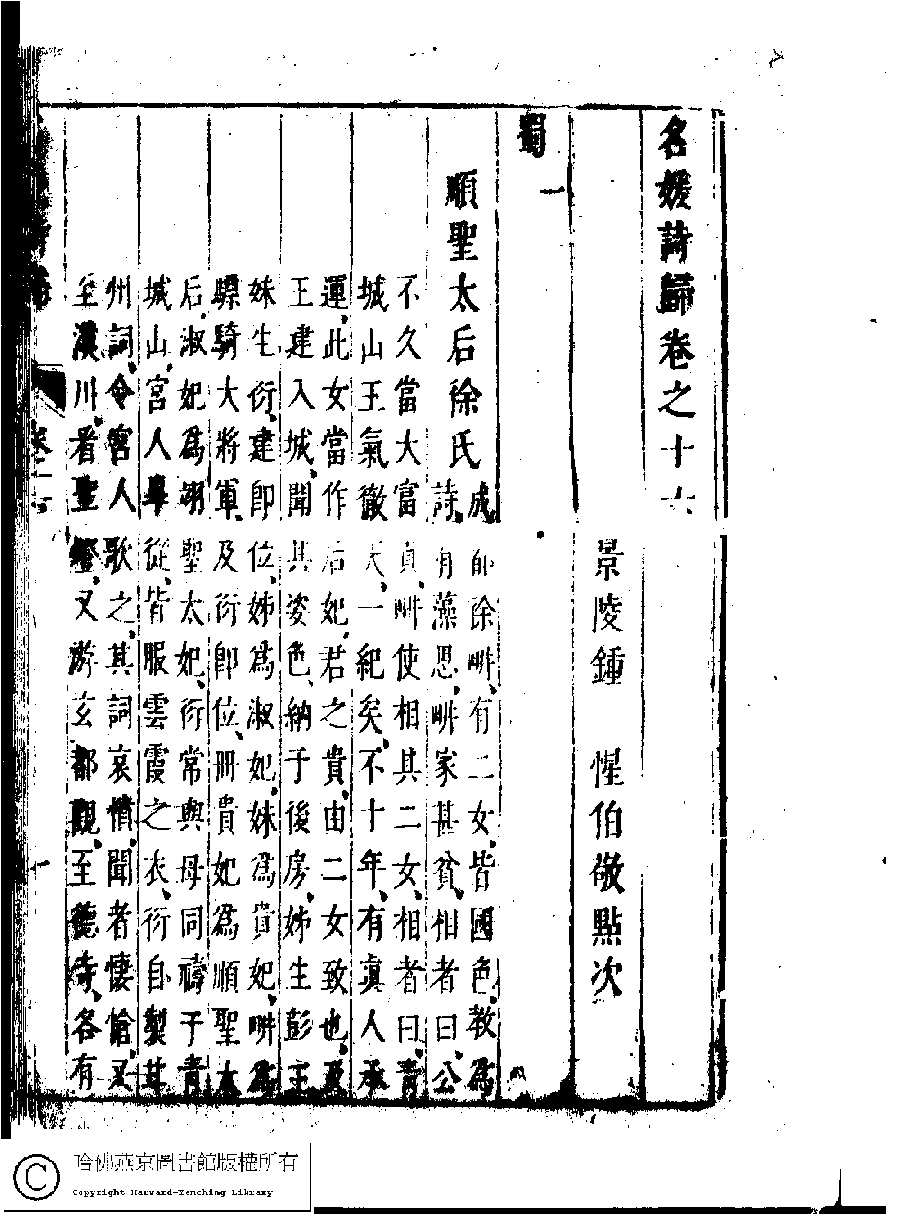 名媛詩歸卷之十六
景陵鍾 惺伯敬點次
蜀
順聖太后徐氏
成都徐畊有二女皆國色教為
詩有藻思畊家甚貧相者曰公
不久當大富貴畊使相其二女相者曰青
城山王氣徹天一紀矣不十年有真人承
運此女當作后妃君之貴由二女致也及
王建入城聞其姿色納于後房姊生彭王
妹生衍建即位姊為淑妃妹為貴妃畊為
驃騎大將軍及衍即位冊貴妃為順聖太
后淑妃為翊聖太妃衍常與母同禱于青
城山宮人畢從皆服雲霞之衣衍自製甘
州詞令宮人歌之其詞哀聞者悽愴又
至漢川看聖燈又游玄都觀至德寺各有
哈佛燕京圖書館版權所有
Copyright Harvard-Yenching Library